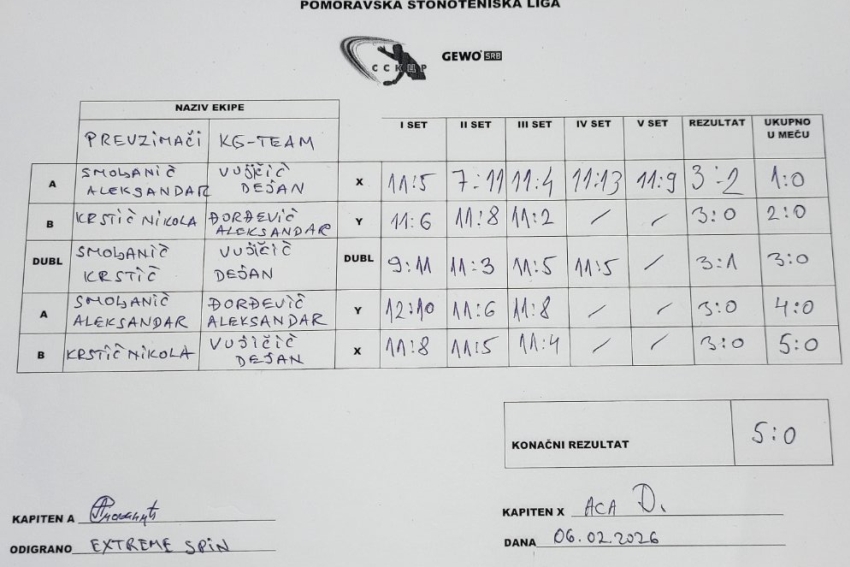 POMORAVSKA STONOTENISKA LIGA
ССКПР GEWO SRB
NAZIV EKIPE
PREUZIMAČI KG-TEAM I SET II SET III SET IV SET V SET REZULTAT UKUPNO U MEČU
A SMOLJANIČ ALEKSANDAR VUJIČIČ DEJAN X 11:5 7:11 11:4 11:13 11:9 3:2 1:0
B KRSTIČ NIKOLA ĐORĐEVIČ ALEKSANDAR Y 11:6 11:8 11:2 / / 3:0 2:0
DUBL SMOLJANIČ KRSTIČ VUJIČIČ DEJAN DUBL 9:11 11:3 11:5 11:5 / 3:1 3:0
A SMOLJANIČ ALEKSANDAR ĐORĐEVIČ ALEKSANDAR Y 12:10 11:6 11:8 / / 3:0 4:0
B KRSTIČ NIKOLA VUJIČIČ DEJAN X 11:8 11:5 11:4 / / 3:0 5:0
KONAČNI REZULTAT 5:0
KAPITEN A
KAPITEN X ACA Đ.
ODIGRANO EXTREME SPIN
DANA 06.02.2026